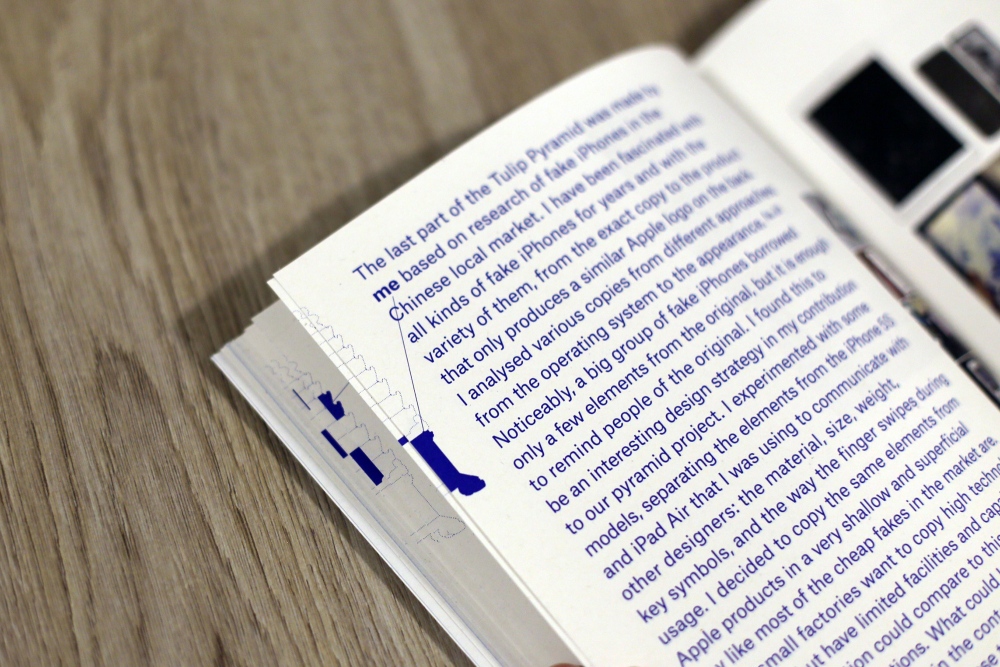 The last part of the Tulip Pyramid was made by
me based on research of fake iPhones in the
Chinese local market. I have been fascinated with
all kinds of fake iPhones for years and with the
variety of them, from the exact copy to the product
that only produces a similar Apple logo on the back.
I analysed various copies from different approaches,
from the operating system to the appearance.
Noticeably, a big group of fake iPhones borrowed
only a few elements from the original, but it is enough
to remind people of the original. I found this to
be an interesting design strategy in my contribution
to our pyramid project. I experimented with some
models, separating the elements from the iPhone
and iPad Air that I was using to communicate with
other designers: the material, size, weight,
key symbols, and the way the finger swipes during
usage. I decided to copy the same elements from
Apple products in a very shallow and superficial
like most of the cheap fakes in the market are
mall factories want to copy high techn
ut have limited facilities and capa
on could compare to thi
ions. What could
the cont